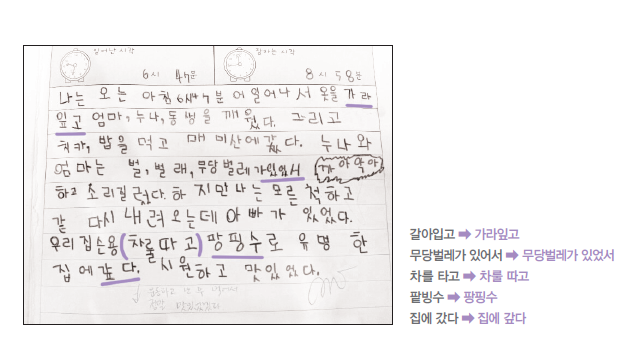 일어난 시각
잠자는 시각
6시 47분
8시 58분
나는 오늘 아침 6시47분에 일어나서 옷을 가라
잎고 엄마, 누나, 동생을 깨웠다. 그리고
밥을 먹고 매미산에 갔다. 누나와
엄마는 벌, 벌래, 무당벌레가있있서 꺄아악아
하고 소리질렀다. 하지만 나는 모른척하고
같 다시 내려오는데 아빠가 있었다.
우리집손용(차를따고) 팡핑수로 유명한
집에갚다. 시원하고 맛있었다.
갈아입고 ➡ 가라잎고
무당벌레가 있어서 ➡ 무당벌레가 있었서
차를 타고 ➡ 차를 따고
팥빙수 ➡ 팡핑수
집에 갔다 ➡ 집에 갚다